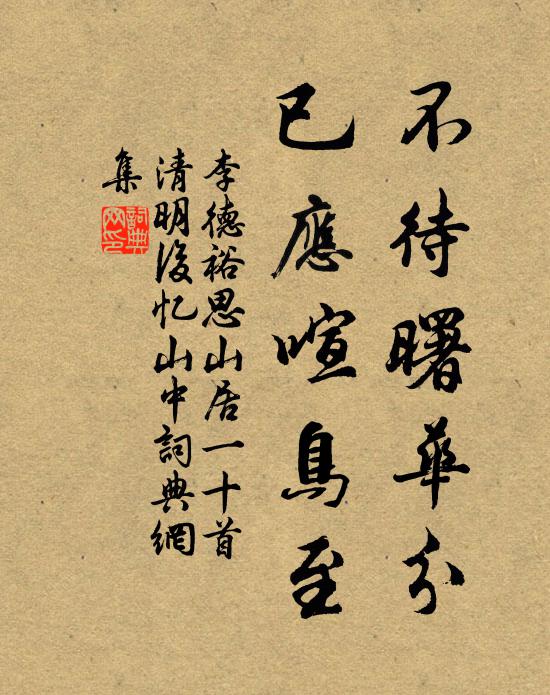 不待曙華分
已應喧鳥至
李德裕思山居一十首
清明後忆山中詞典網
集
詞典
网印